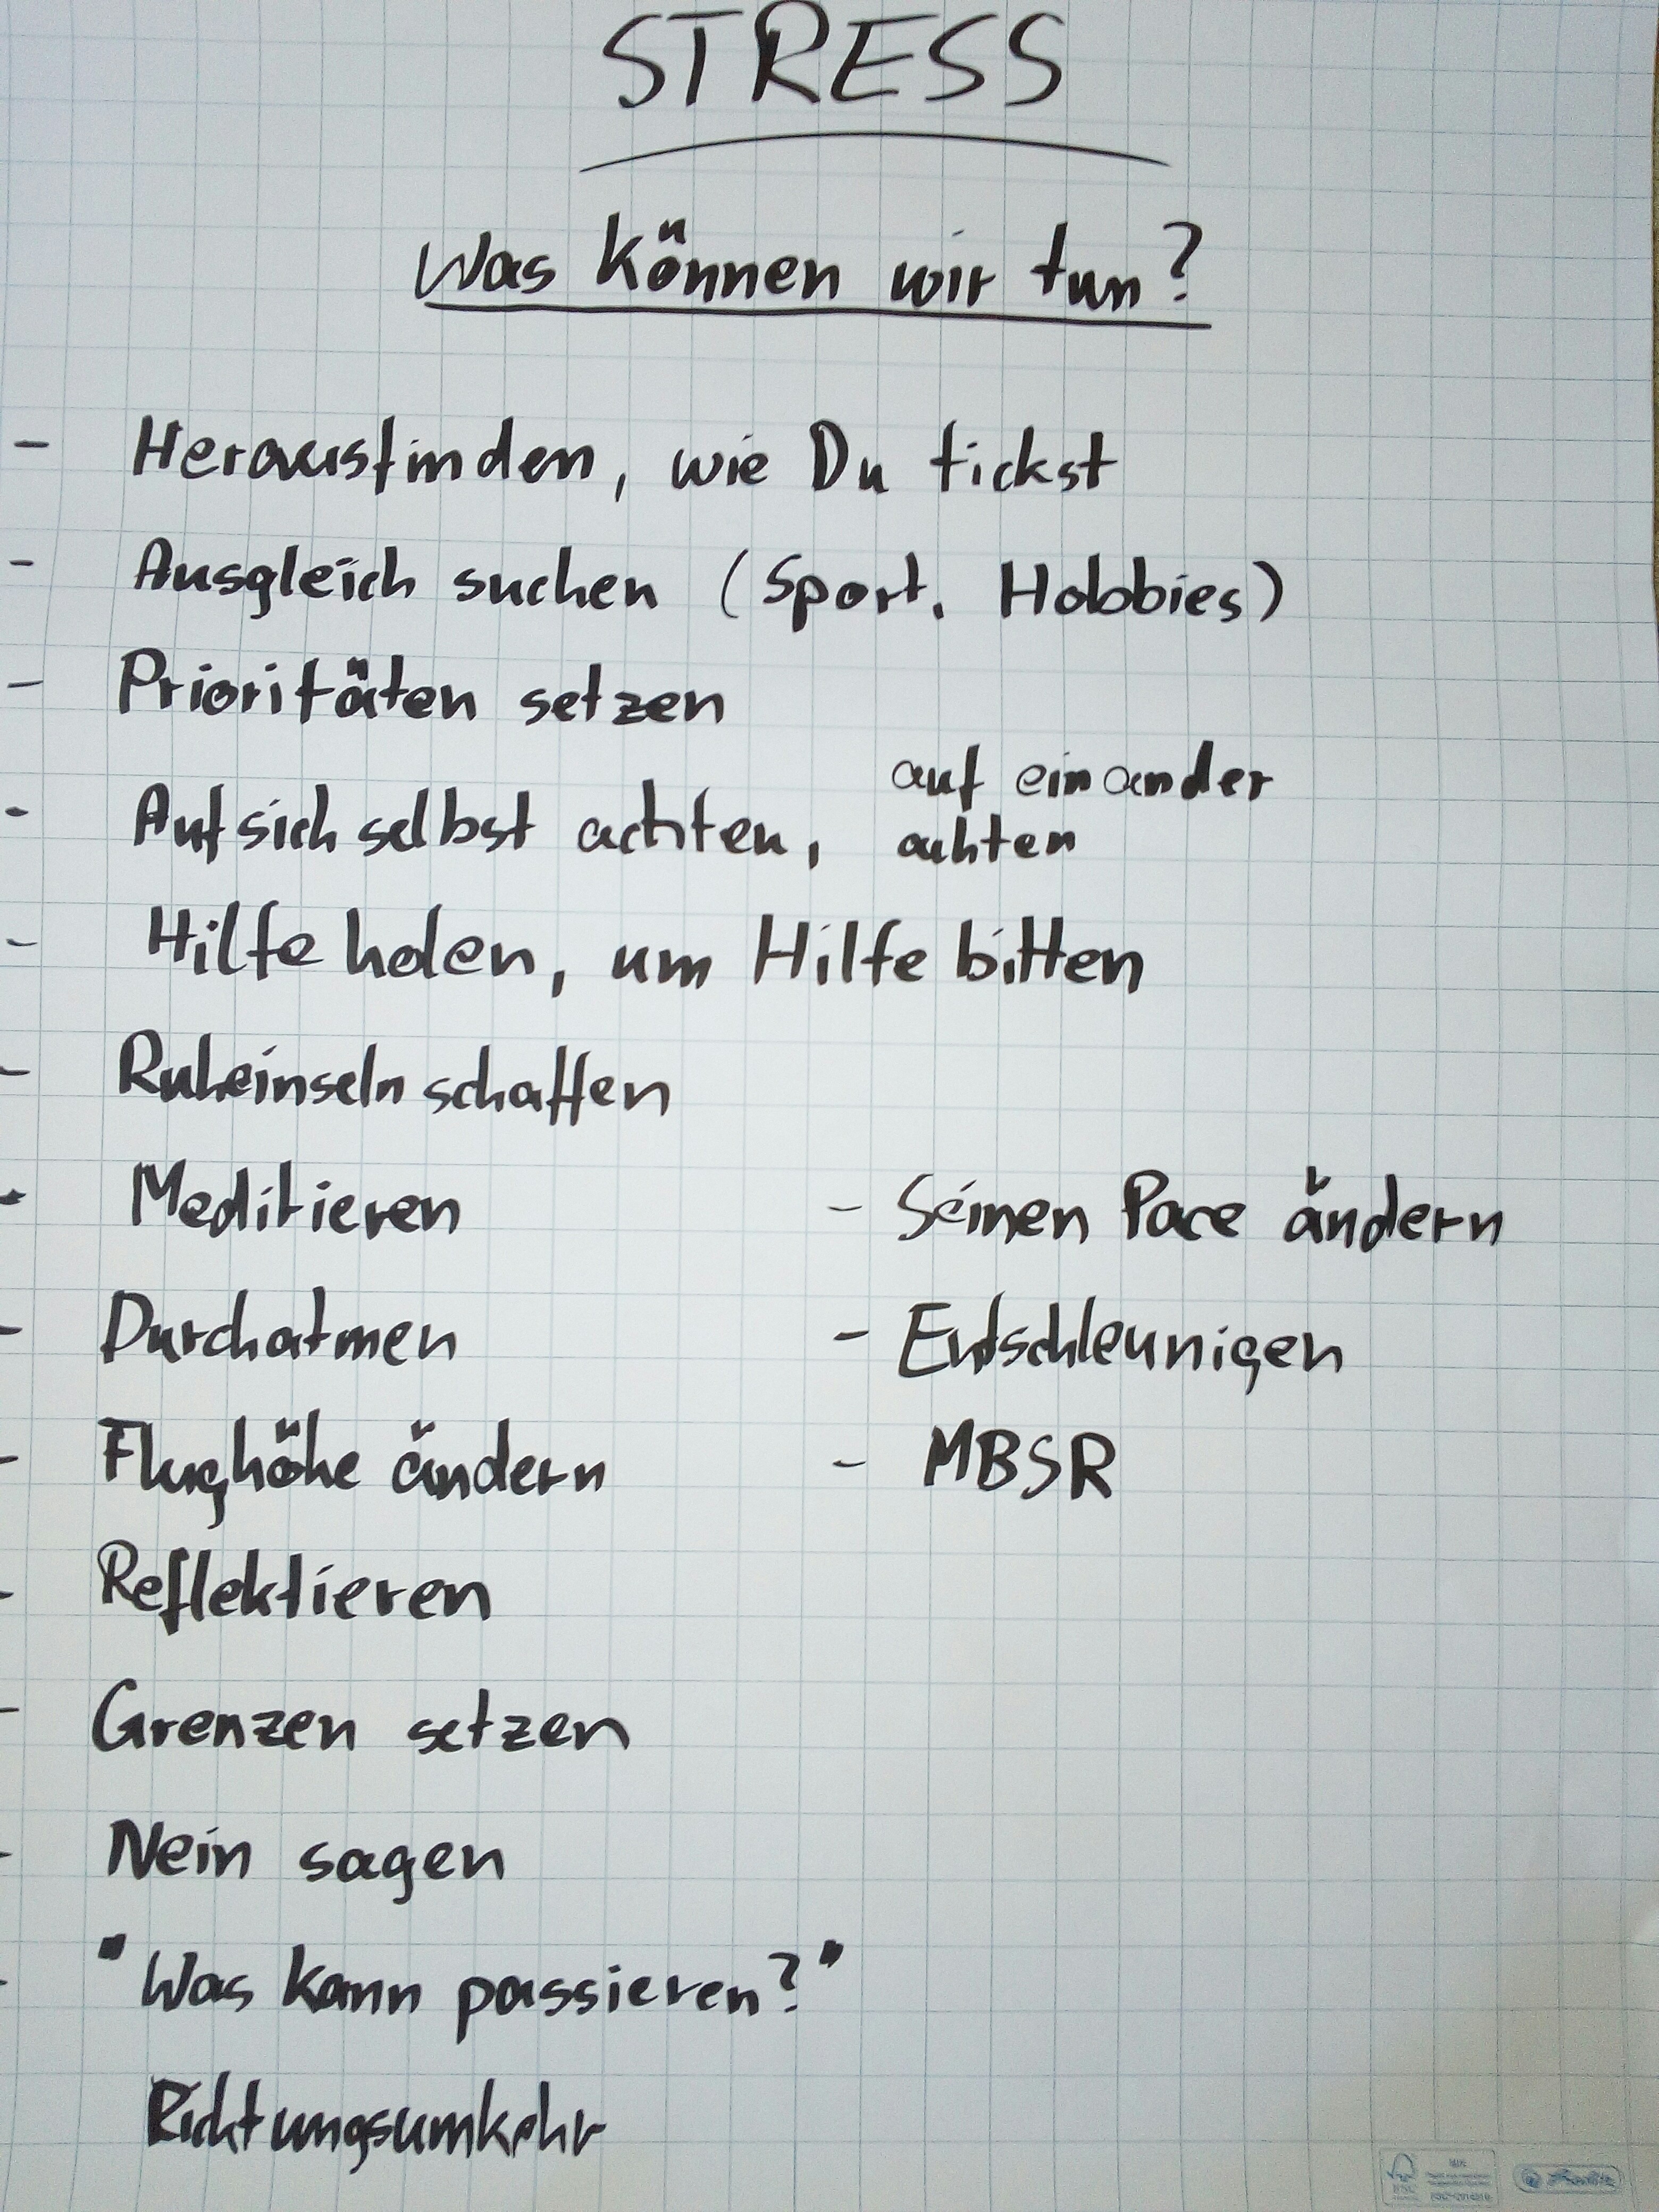 STRESS
Was können wir tun?
- Herausfinden, wie Du tickst
- Ausgleich suchen (Sport, Hobbies)
- Prioritäten setzen
- Auf sich selbst achten, auf einander
achten
- Hilfe holen, um Hilfe bitten
- Ruheinseln schaffen
- Meditieren
- Durchatmen
- Flughöhe ändern
- Reflektieren
- Grenzen setzen
- Nein sagen
- "Was kann passieren?"
Richtungsumkehr
- Seinen Pace ändern
- Entschleunigen
- MBSR
FSC
MIX